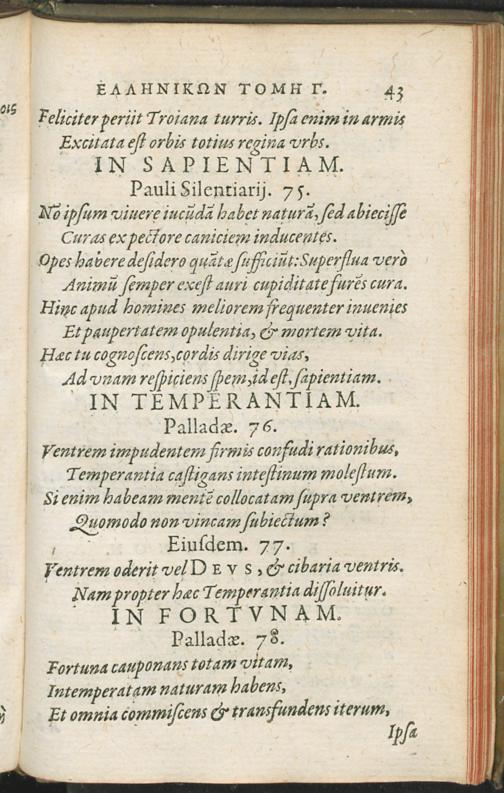 ΕΛΛΗΝΙΚΩΝ ΤΟΜΗ Γ. 43
Feliciter periit Troiana turris. Ipſa enim in armis
Excitata eſt orbis totius regina vrbs.
IN SAPIENTIAM.
Pauli Silentiarij. 75.
Nō ipſum viuere iucūdā habet naturā, ſed abieciſſe
Curas ex pectore caniciem inducentes.
Opes habere deſidero quātæ ſufficiūt: Superflua verò
Animū ſemper exeſt auri cupiditate furēs cura.
Hinc apud homines meliorem frequenter inuenies
Et paupertatem opulentia, & mortem vita.
Hæc tu cognoſcens, cordis dirige vias,
Ad vnam reſpiciens ſpem, id eſt, ſapientiam.
IN TEMPERANTIAM.
Palladæ. 76.
Ventrem impudentem firmis confudi rationibus,
Temperantia caſtigans inteſtinum moleſtum.
Si enim habeam mentē collocatam ſupra ventrem,
Quomodo non vincam ſubiectum?
Eiuſdem. 77.
Ventrem oderit vel DEVS, & cibaria ventris.
Nam propter hæc Temperantia diſſoluitur.
IN FORTVNAM.
Palladæ. 78.
Fortuna cauponans totam vitam,
Intemperatam naturam habens,
Et omnia commiſcens & transfundens iterum,
Ipſa